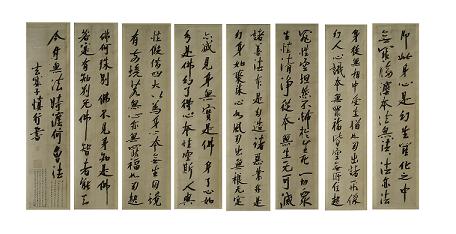 即此身心是幻生幻化之中
無罪福法本法無法無法法亦法
身從無相中受生猶如幻出諸形像
幻人心識本來無罪福皆空無所住起
罪性空坦然不怖於生死一切眾
生性清淨從本無生無可滅
諸善法本是幻造諸惡業亦是
幻身如聚沫心如風幻出無根無實
亦滅見身無實是佛身了心如
幻是佛幻了得身心本性空斯人與
性假借四大以為身心本無生因境
有前境若無心亦無罪福如幻起
佛何殊別佛不見身知是佛
若實有知別無佛智者能知
今付無法時法法何曾法
慎行書